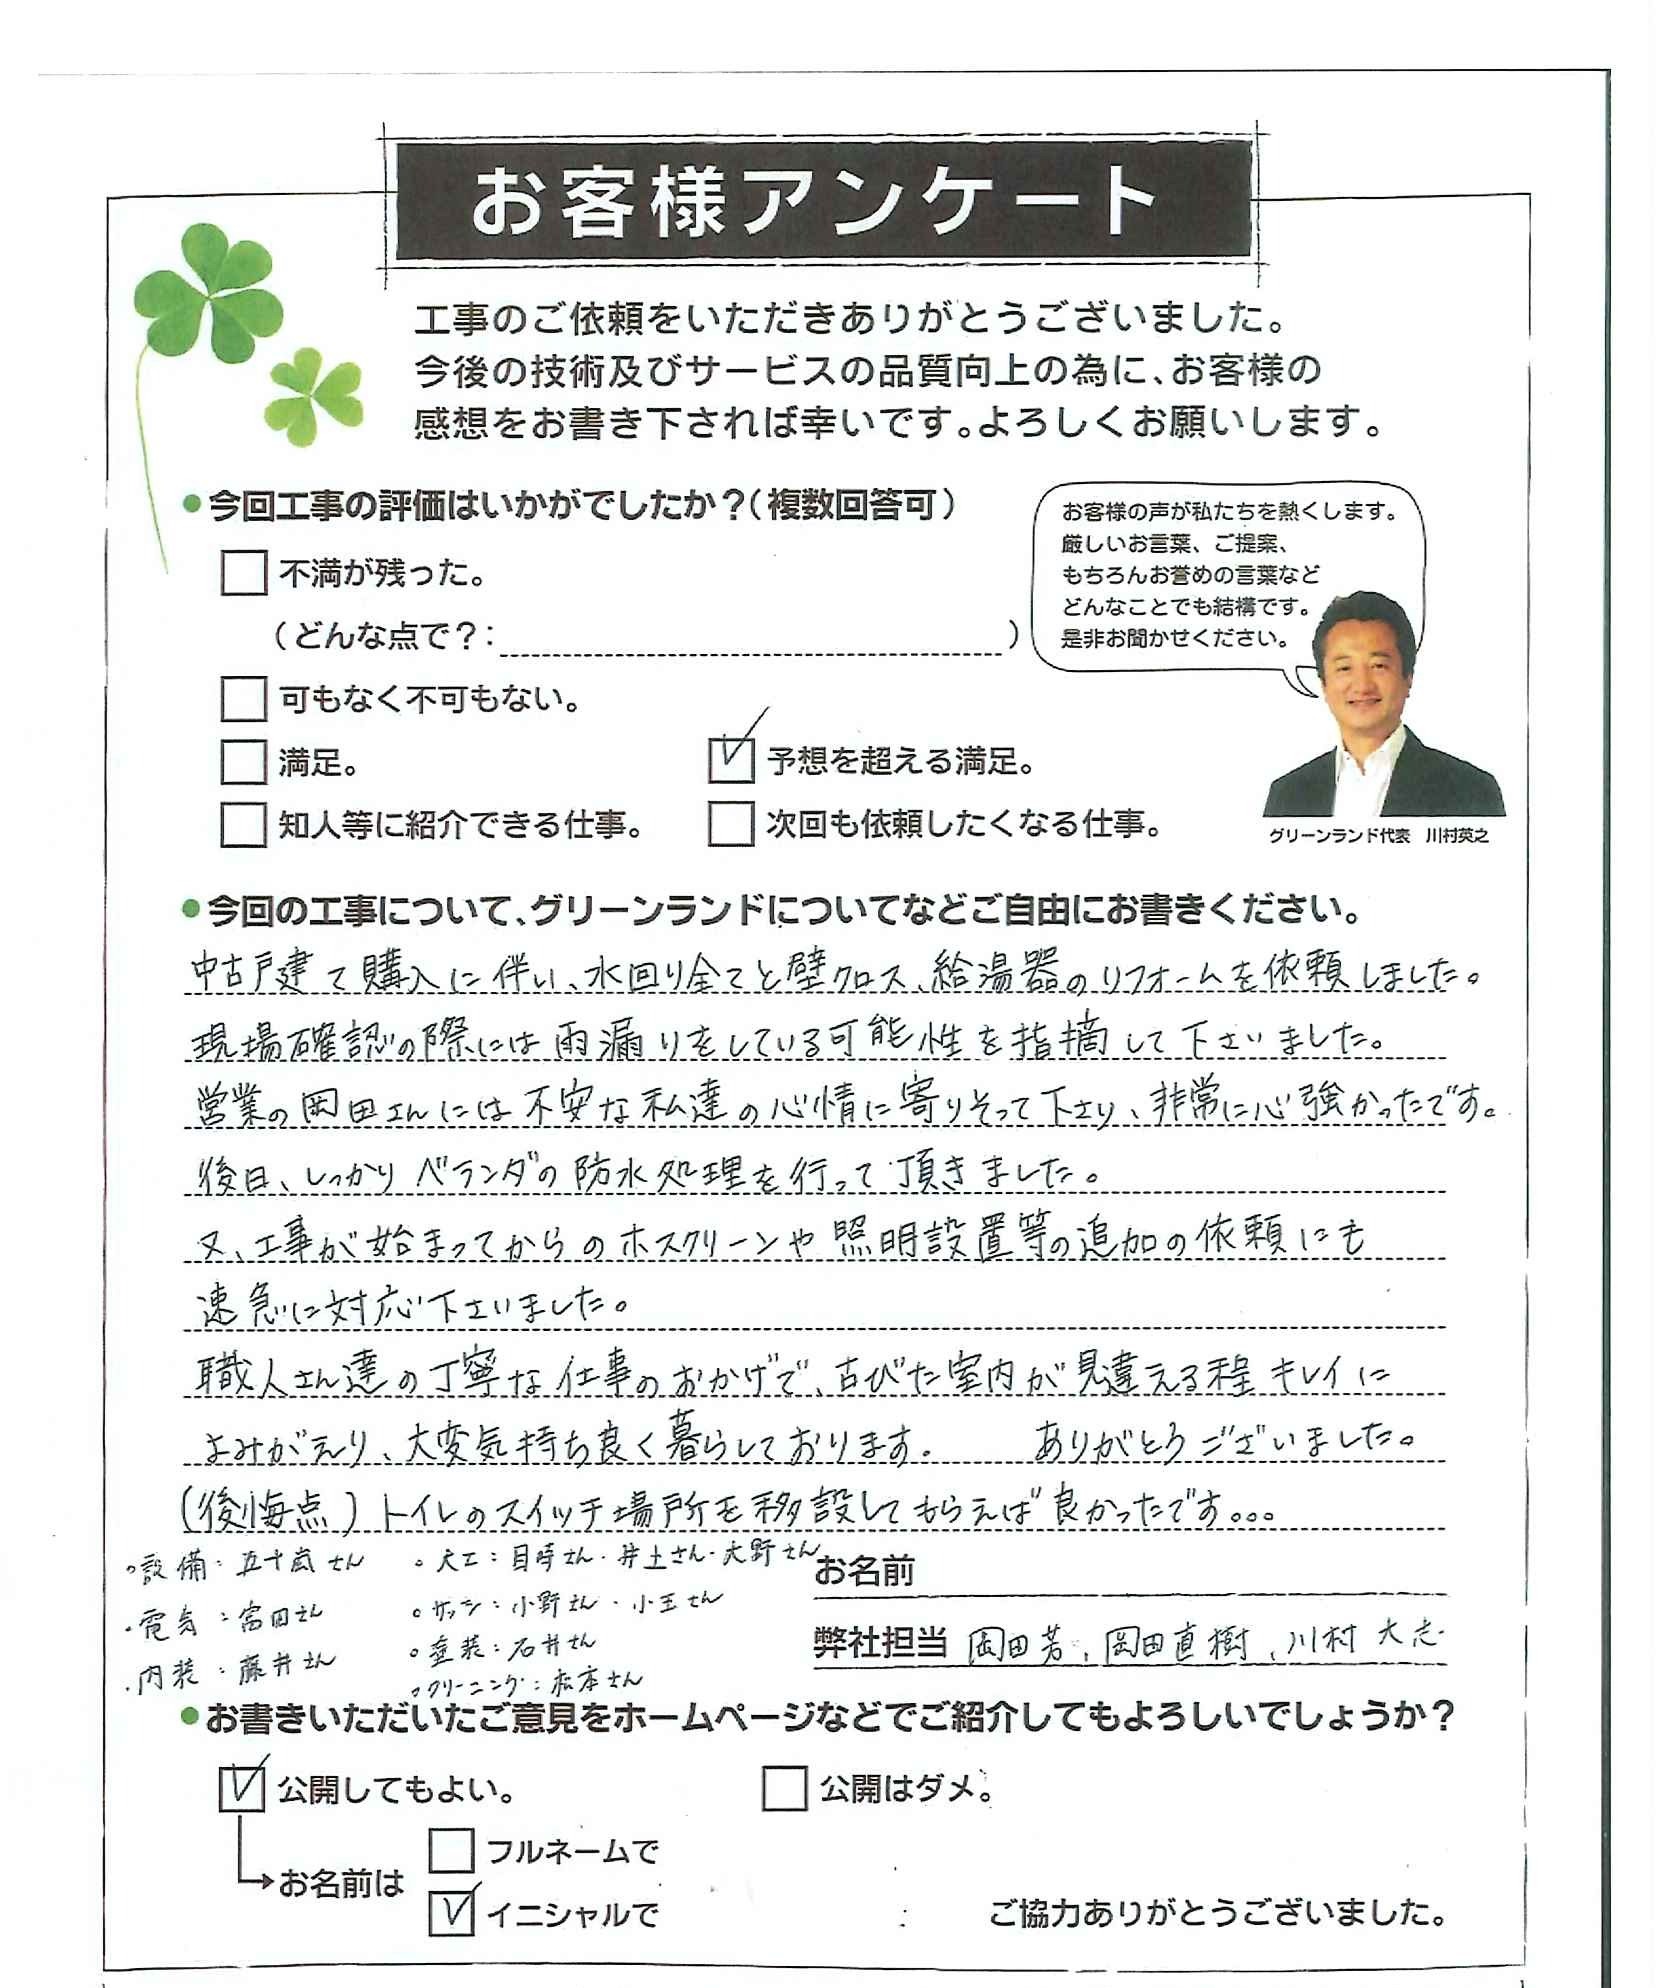 お客様アンケート
工事のご依頼をいただきありがとうございました。
今後の技術及びサービスの品質向上の為に、お客様の
感想をお書き下されれば幸いです。よろしくお願いします。
●今回工事の評価はいかがでしたか？（複数回答可）
不満が残った。
（どんな点で？：　）
可もなく不可もない。
満足。
予想を超える満足。
知人等に紹介できる仕事。
次回も依頼したくなる仕事。
お客様の声が私たちを熱くします。
厳しいお言葉、ご提案、
もちろんお誉めの言葉など
どんなことでも結構です。
是非お聞かせください。
グリーンランド代表　川村英之
●今回の工事について、グリーンランドについてなどご自由にお書きください。
中古戸建て購入に伴い、水回り全てと壁クロス、給湯器のリフォームを依頼しました。
現場確認の際には雨漏りをしている可能性を指摘して下さいました。
営業の岡田さんには不安な私達の心情に寄りそって下さり、非常に心強かったです。
後日、しっかりベランダの防水処理を行って頂きました。
又、工事が始まってからのホスクリーンや照明設置等の追加の依頼にも
速急に対応下さいました。
職人さん達の丁寧な仕事のおかげで、古びた室内が見違える程キレイに
よみがえり、大変気持ち良く暮らしております。　ありがとうございました。
(後悔点) トイレのスイッチ場所を移設してもらえば良かったです。。。
・設備：五十嵐さん
・電気：富田さん
・内装：藤井さん
・大工：目時さん・井土さん・大野さん
・サッシ：小野さん・小玉さん
・塗装：石井さん
・クリーニング：松本さん
お名前
弊社担当 岡田芳、岡田直樹、川村大志
●お書きいただいたご意見をホームページなどでご紹介してもよろしいでしょうか？
公開してもよい。
公開はダメ。
お名前は
フルネームで
イニシャルで
ご協力ありがとうございました。